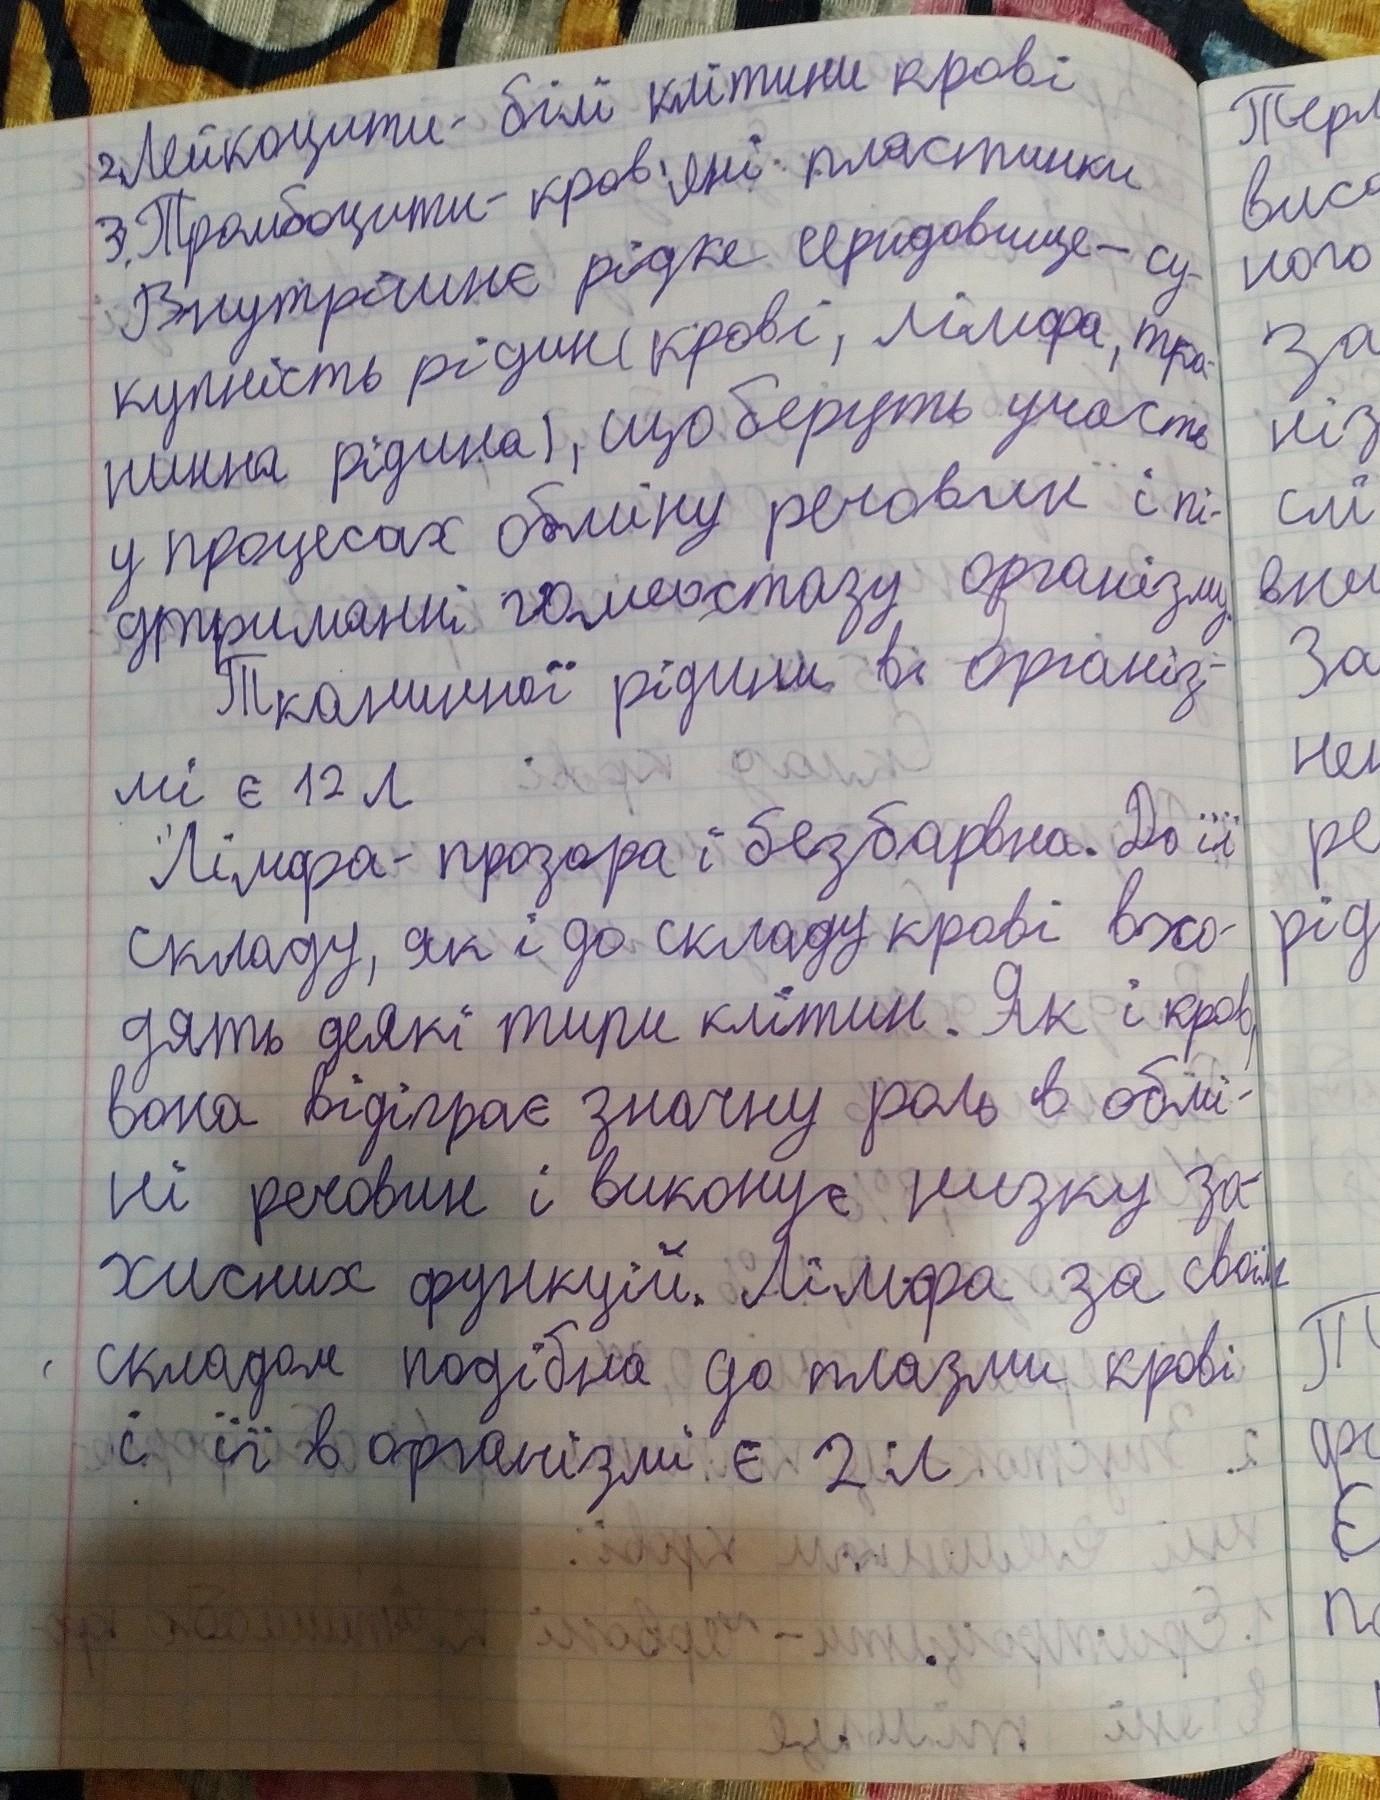 2. Лейкоцити - білі клітини крові
3. Тромбоцити - кров'яні пластинки
Внутрішнє рідке середовище - су-
купність рідин (крові, лімфа, тка-
нинна рідина), що беруть участь
у процесах обміну речовин і пі-
дтриманні гомеостазу організму.
Тканинної рідини в організ-
мі є 12 л
Лімфа - прозора і безбарвна. До її
складу, як і до складу крові вхо-
дять деякі типи клітин. Як і кров,
вона відіграє значну роль в обмі-
ні речовин і виконує низку за-
хисних функцій. Лімфа за своїм
складом подібна до плазми крові
і її в організмі є 2 л